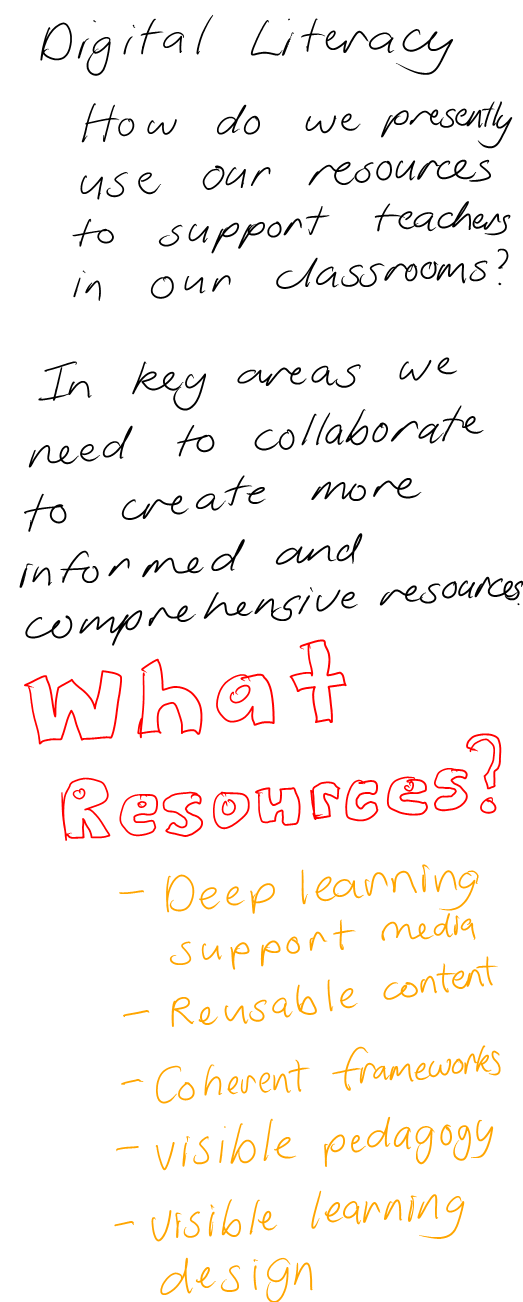 Digital Literacy
How do we presently
use our resources
to support teachers
in our classrooms?
In key areas we
need to collaborate
to create more
informed and
comprehensive resources.
What
Resources?
- Deep learning
support media
- Reusable content
- Coherent frameworks
- visible pedagogy
- visible learning
design